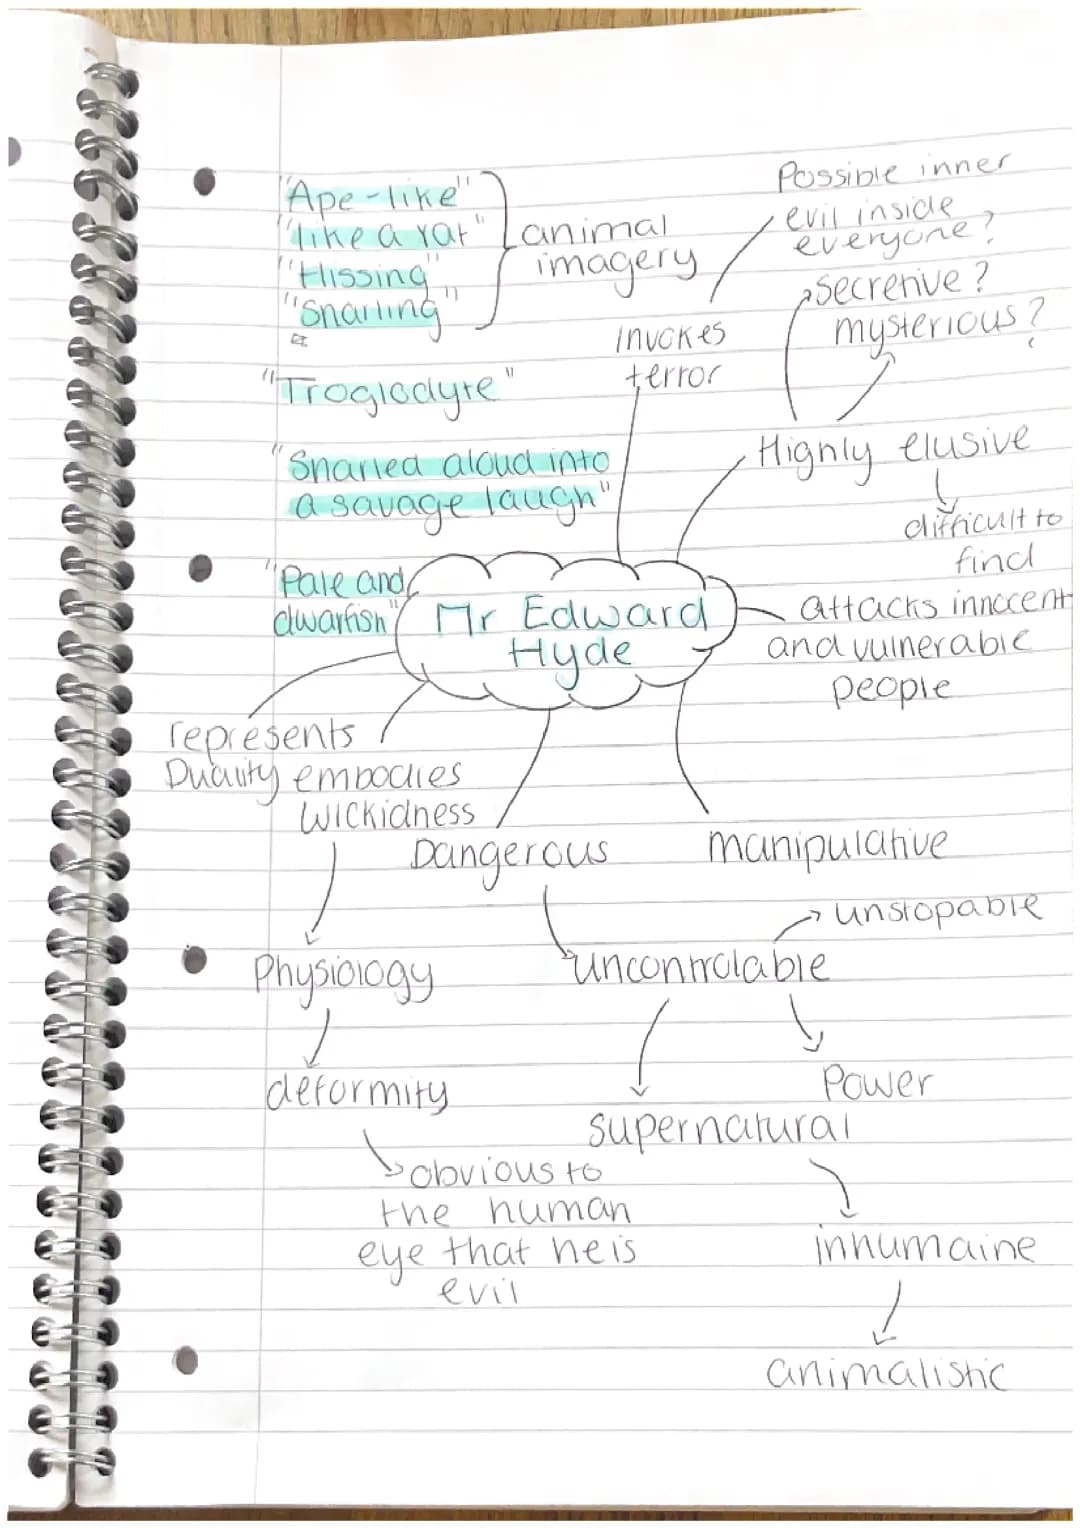 "Ape-like"
"like a rat"
"Hissing"
"Snarling"
animal
imagery
"Troglodyte"
"Snarled aloud into
a savage laugh"
"Pale and
dwarfish"
Possible inner
evil inside
everyone?
secretive?
mysterious?
invokes
terror
Highly elusive
difficult to
find
Mr Edward
Hyde
attacks innocent
and vulnerable
people
represents
Duality
embodies
wickidness
Dangerous
manipulative
unstopable
Physiology
uncontrolable
deformity
Power
supernatural
obvious to
the human
eye that he is
evil
inhumaine
animalistic